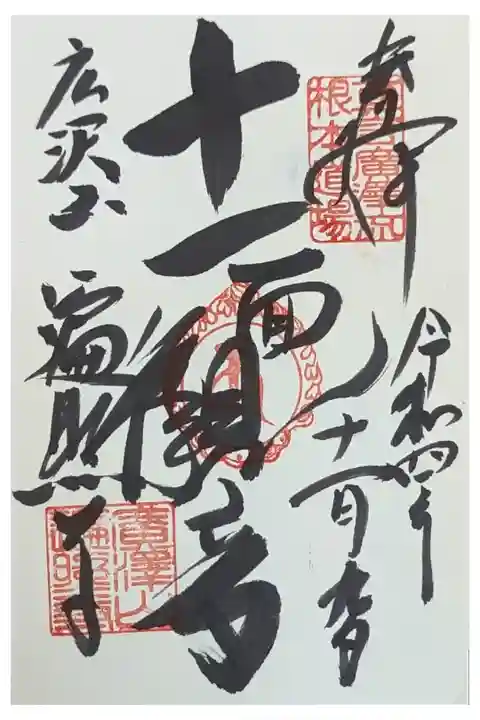 奉拝
令和四年
十一月九日
十一面観音
広沢山
遍照寺
真言廣澤流
根本道場
廣澤山
遍照寺